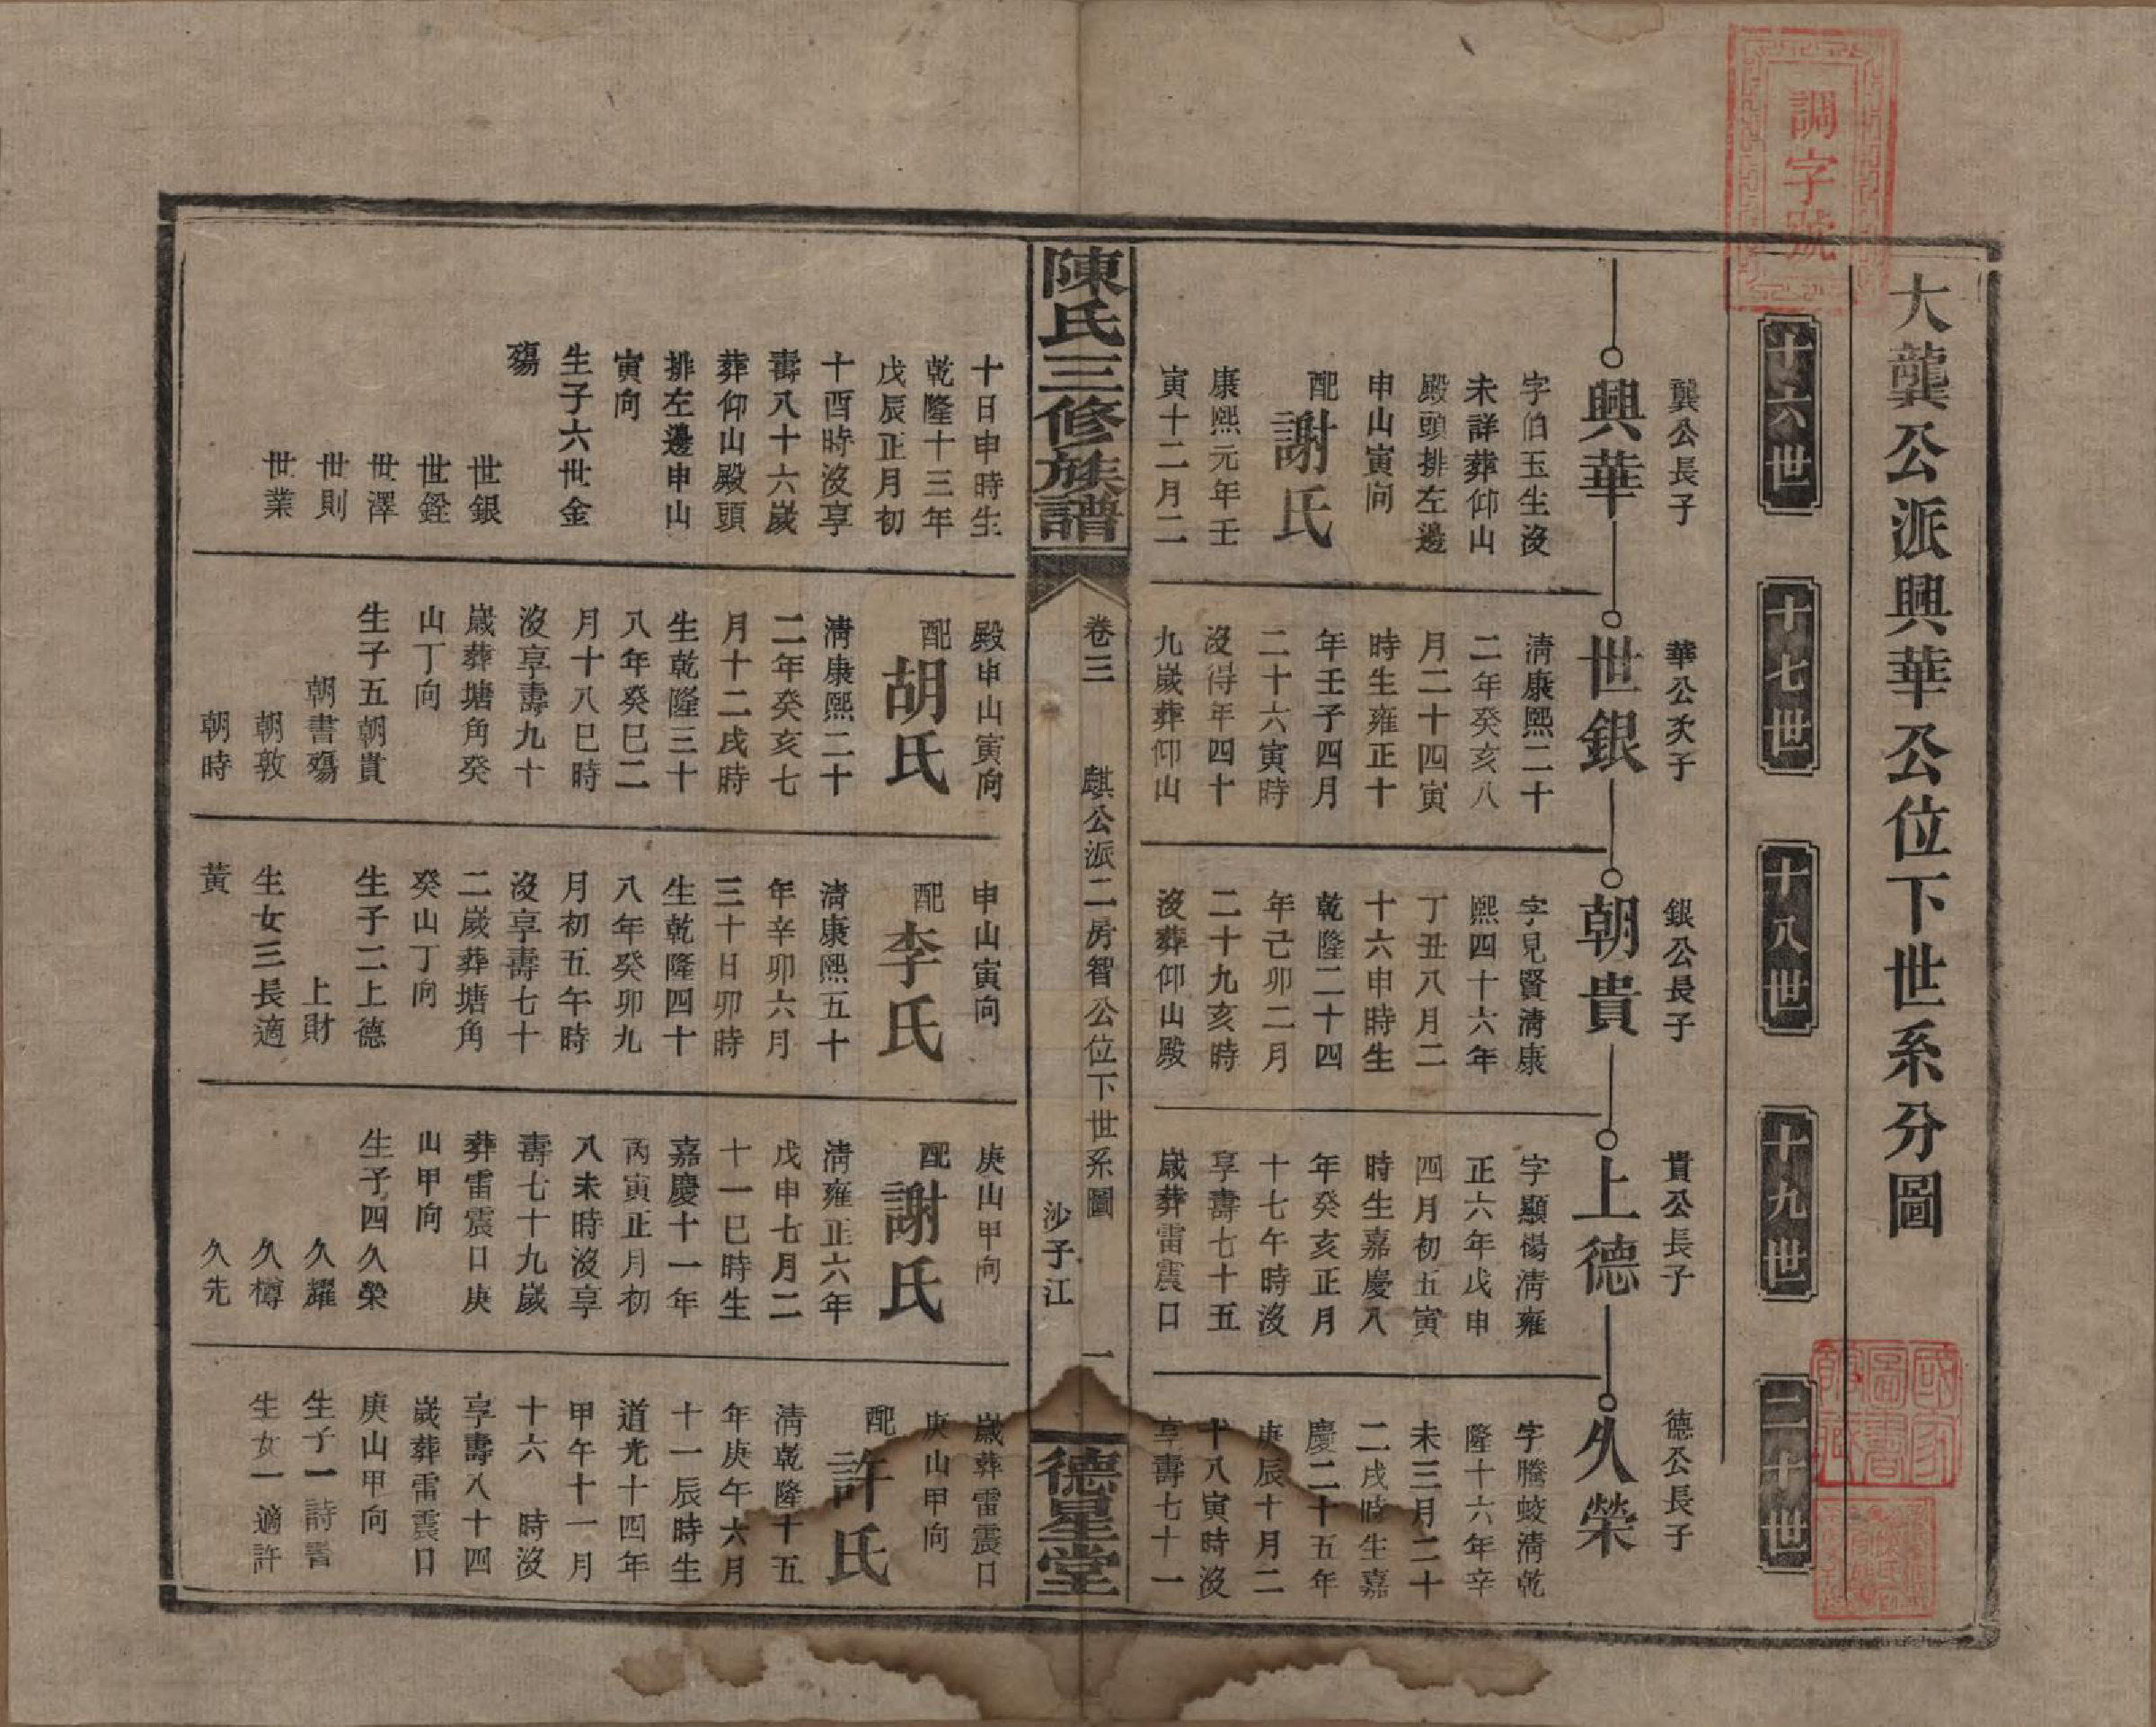 調字號
大龔公派興華公位下世系分圖
十六世
十七世
十八世
十九世
二十世
龔公長子
興華
字伯玉生沒
未詳葬仰山
殿頭排左邊
申山寅向
配謝氏
康熙元年壬
寅十二月二
華公次子
世銀
淸康熙二十
二年癸亥八
月二十四寅
時生雍正十
年壬子四月
二十六寅時
沒得年四十
九歲葬仰山
銀公長子
朝貴
字見賢淸康
熙四十六年
丁丑八月二
十六申時生
乾隆二十四
年己卯二月
二十九亥時
沒葬仰山殿
貴公長子
上德
字顯楊淸雍
正六年戊申
四月初五寅
時生嘉慶八
年癸亥正月
十七午時沒
享壽七十五
歲葬雷震口
德公長子
久榮
字騰蛟淸乾
隆十六年辛
未三月二十
二戌時生嘉
慶二十五年
庚辰十月二
十八寅時沒
享壽七十一
陳氏三修族譜
卷三
麒公派二房智公位下世系圖
沙子江
一
德星堂
十日申時生
乾隆十三年
戊辰正月初
十酉時沒享
壽八十六歲
葬仰山殿頭
排左邊申山
寅向
生子六世金
殤
世銀
世銓
世澤
世則
世業
殿申山寅向
配胡氏
淸康熙二十
二年癸亥七
月十二戌時
生乾隆三十
八年癸巳二
月十八巳時
沒享壽九十
歲葬塘角癸
山丁向
生子五朝貴
朝書殤
朝敦
朝時
申山寅向
配李氏
淸康熙五十
年辛卯六月
三十日卯時
生乾隆四十
八年癸卯九
月初五午時
沒享壽七十
二歲葬塘角
癸山丁向
生子二上德
上財
生女三長適
黃
庚山甲向
配謝氏
淸雍正六年
戊申七月二
十一巳時生
嘉慶十一年
丙寅正月初
八未時沒享
壽七十九歲
葬雷震口庚
山甲向
生子四久榮
久耀
久樽
久先
歲葬雷震口
庚山甲向
配許氏
淸乾隆十五
年庚午六月
十一辰時生
道光十四年
甲午十一月
十六　時沒
享壽八十四
歲葬雷震口
庚山甲向
生子一詩書
生女一適許